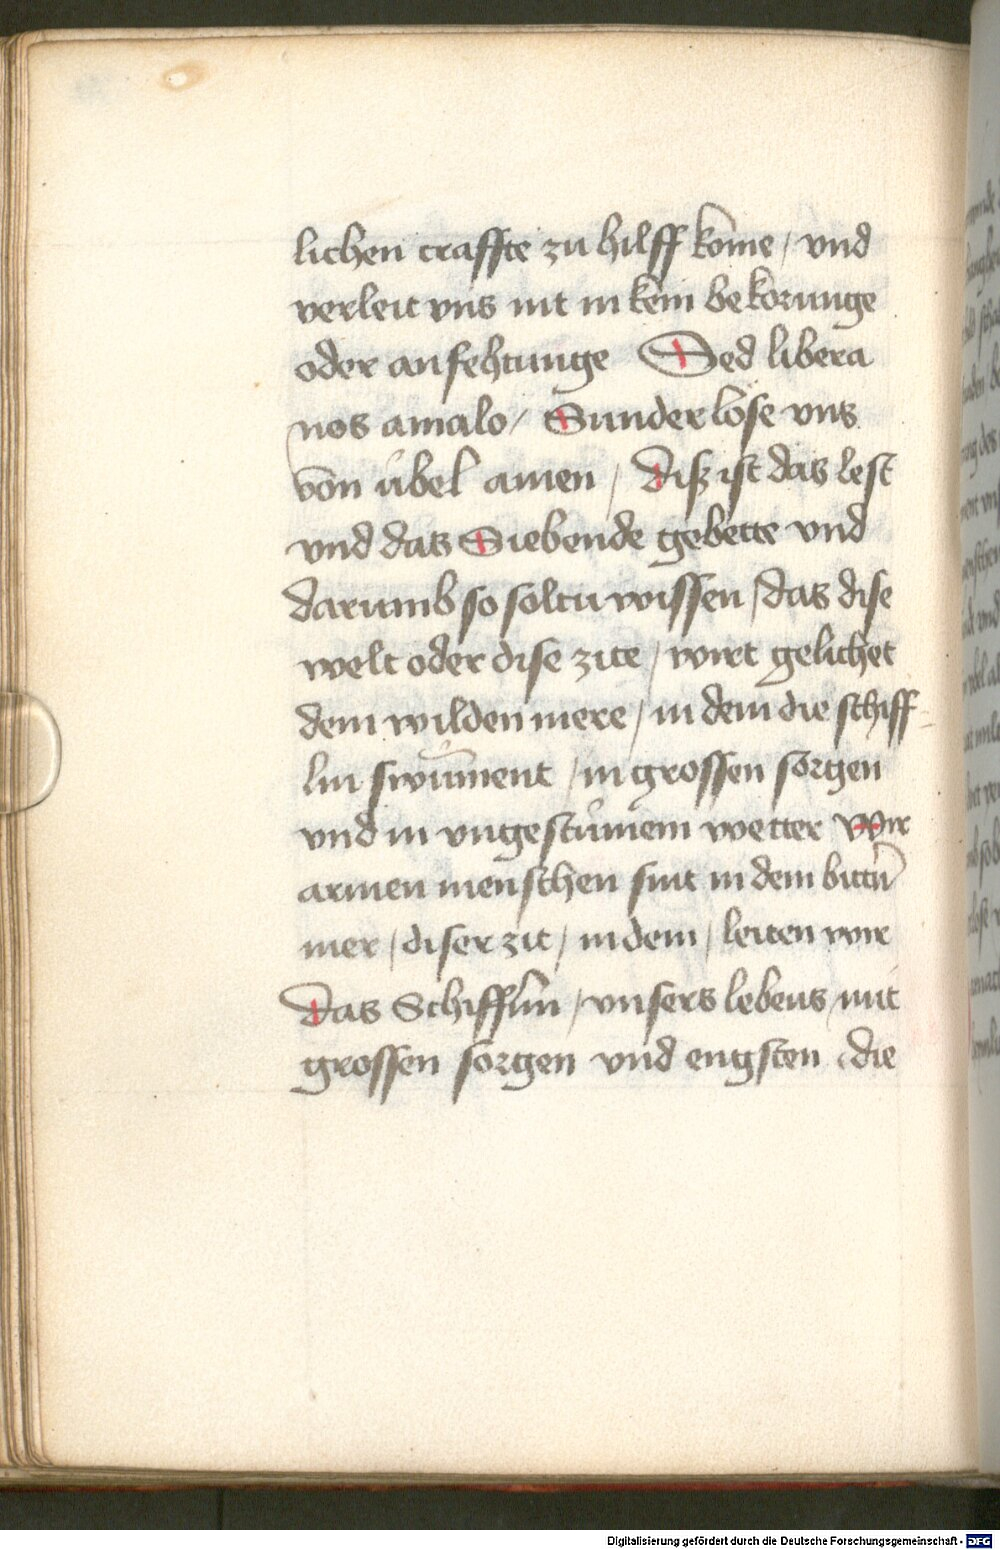 lichen craffte zu hilff kōme / vnd
verleit vns nit in kein bekorunge
oder anfehtunge Sed libera
nos amalo / Sunder löse vns
von übel amen / Disz ist das lest
vnd das Siebende gebette vnd
darumb so soltu wissen / das dise
welt oder dise zite / wirt gelichet
dem wilden mere / in dem die schiff-
lin swūment / in grossen sorgen
vnd in vngestümem wetter Wir
armen menschen sint in dem bittern
mer / diser zit / in dem / leiten wir
Das Schifflin / vnsers lebens mit
grossen sorgen vnd engsten die
Digitalisierung gefördert durch die Deutsche Forschungsgemeinschaft - DFG